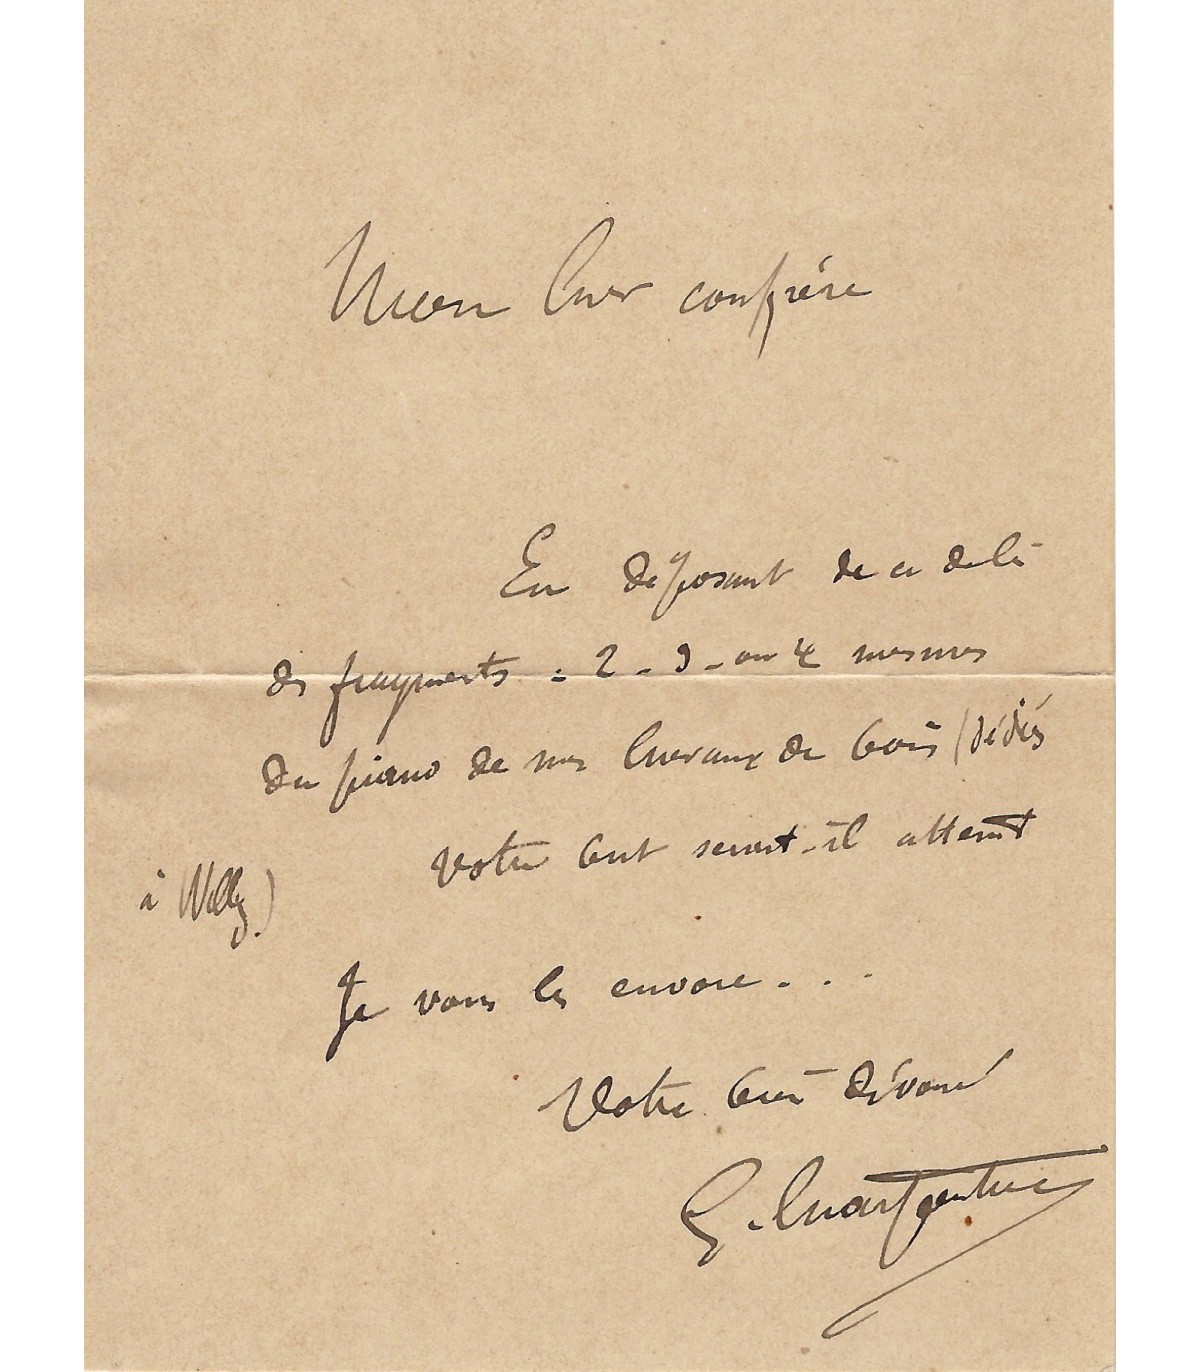 Mon cher confrère
En déposant de ci de là
des fragments = 2 - 3 - ou 4 mesures
du piano de mes chevaux de bois (dédiés
à Willy.)
votre but serait-il atteint
Je vous les envoie...
Votre bien dévoué
G. Charpentier